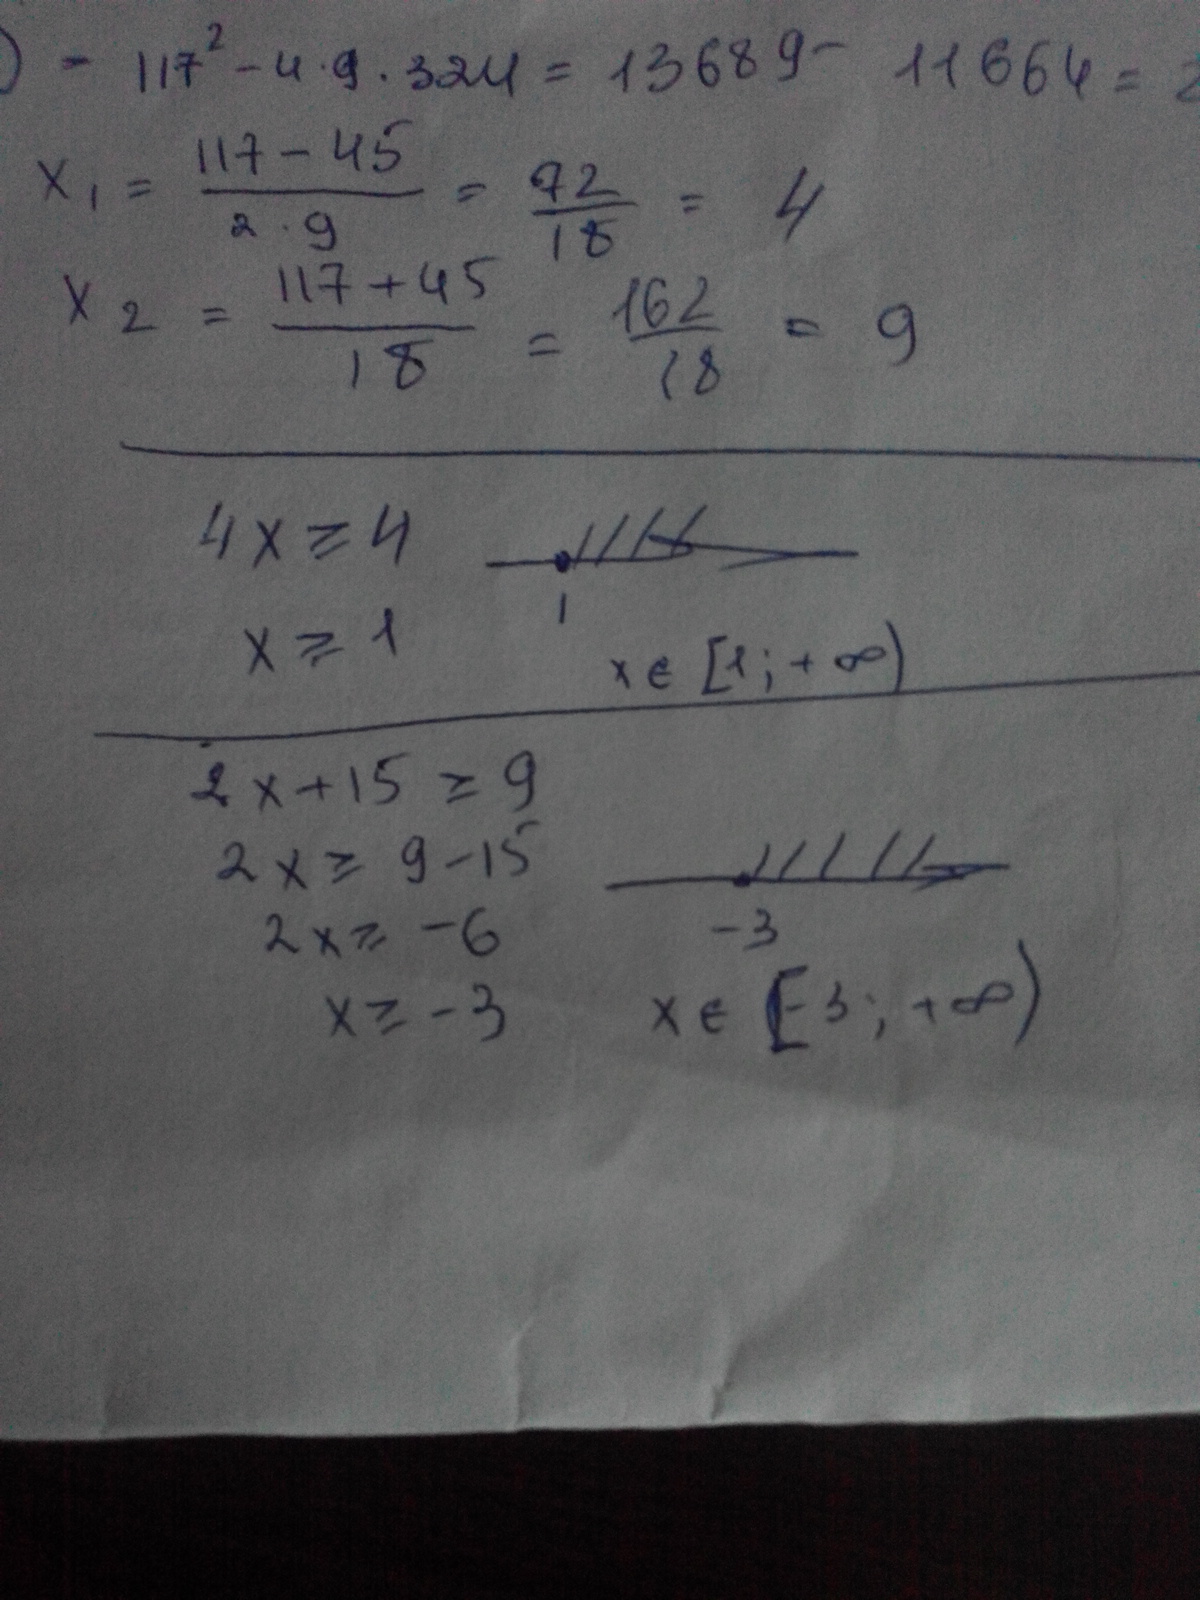 ) = 117² - 4 · 9 · 324 = 13689 - 11664 = 2
x₁ = (117 - 45)/(2 · 9) = 72/18 = 4
x₂ = (117 + 45)/18 = 162/18 = 9
4x ≥ 4
1
x ≥ 1
x ∈ [1; +∞)
2x + 15 ≥ 9
2x ≥ 9 - 15
2x ≥ -6
-3
x ≥ -3
x ∈ [-3; +∞)